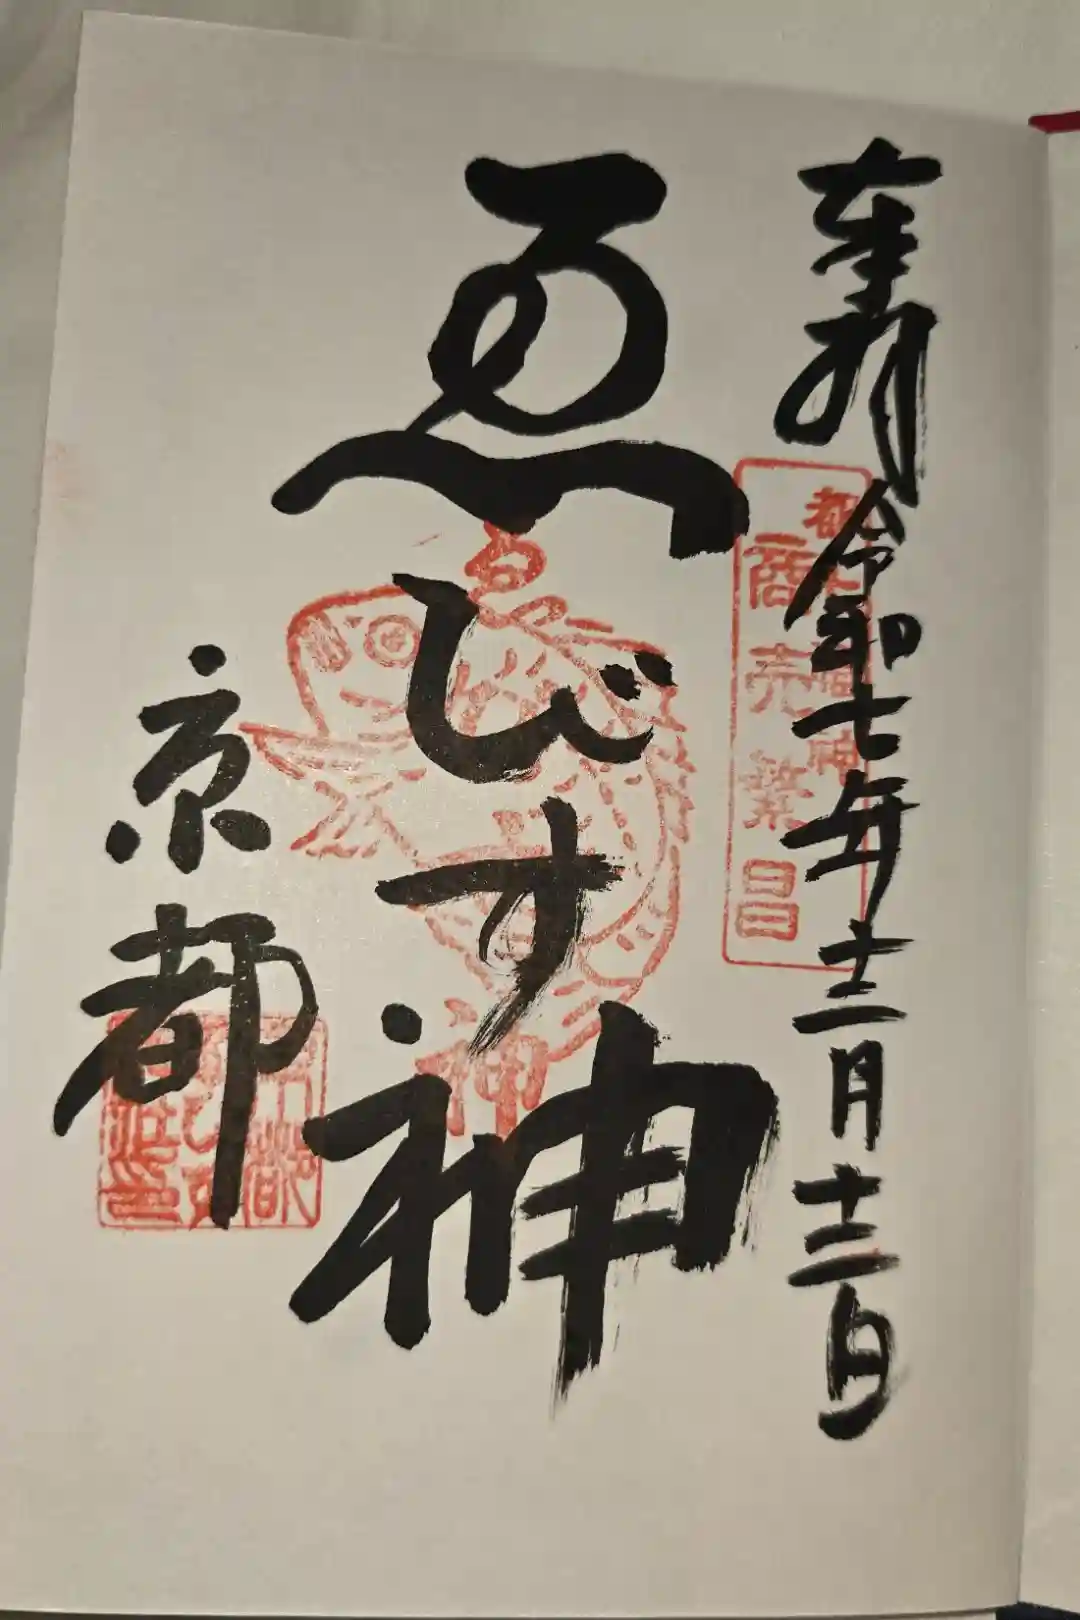 奉拝
令和七年十二月十二日
都七福神
商売繁昌
ゑびす神
京都